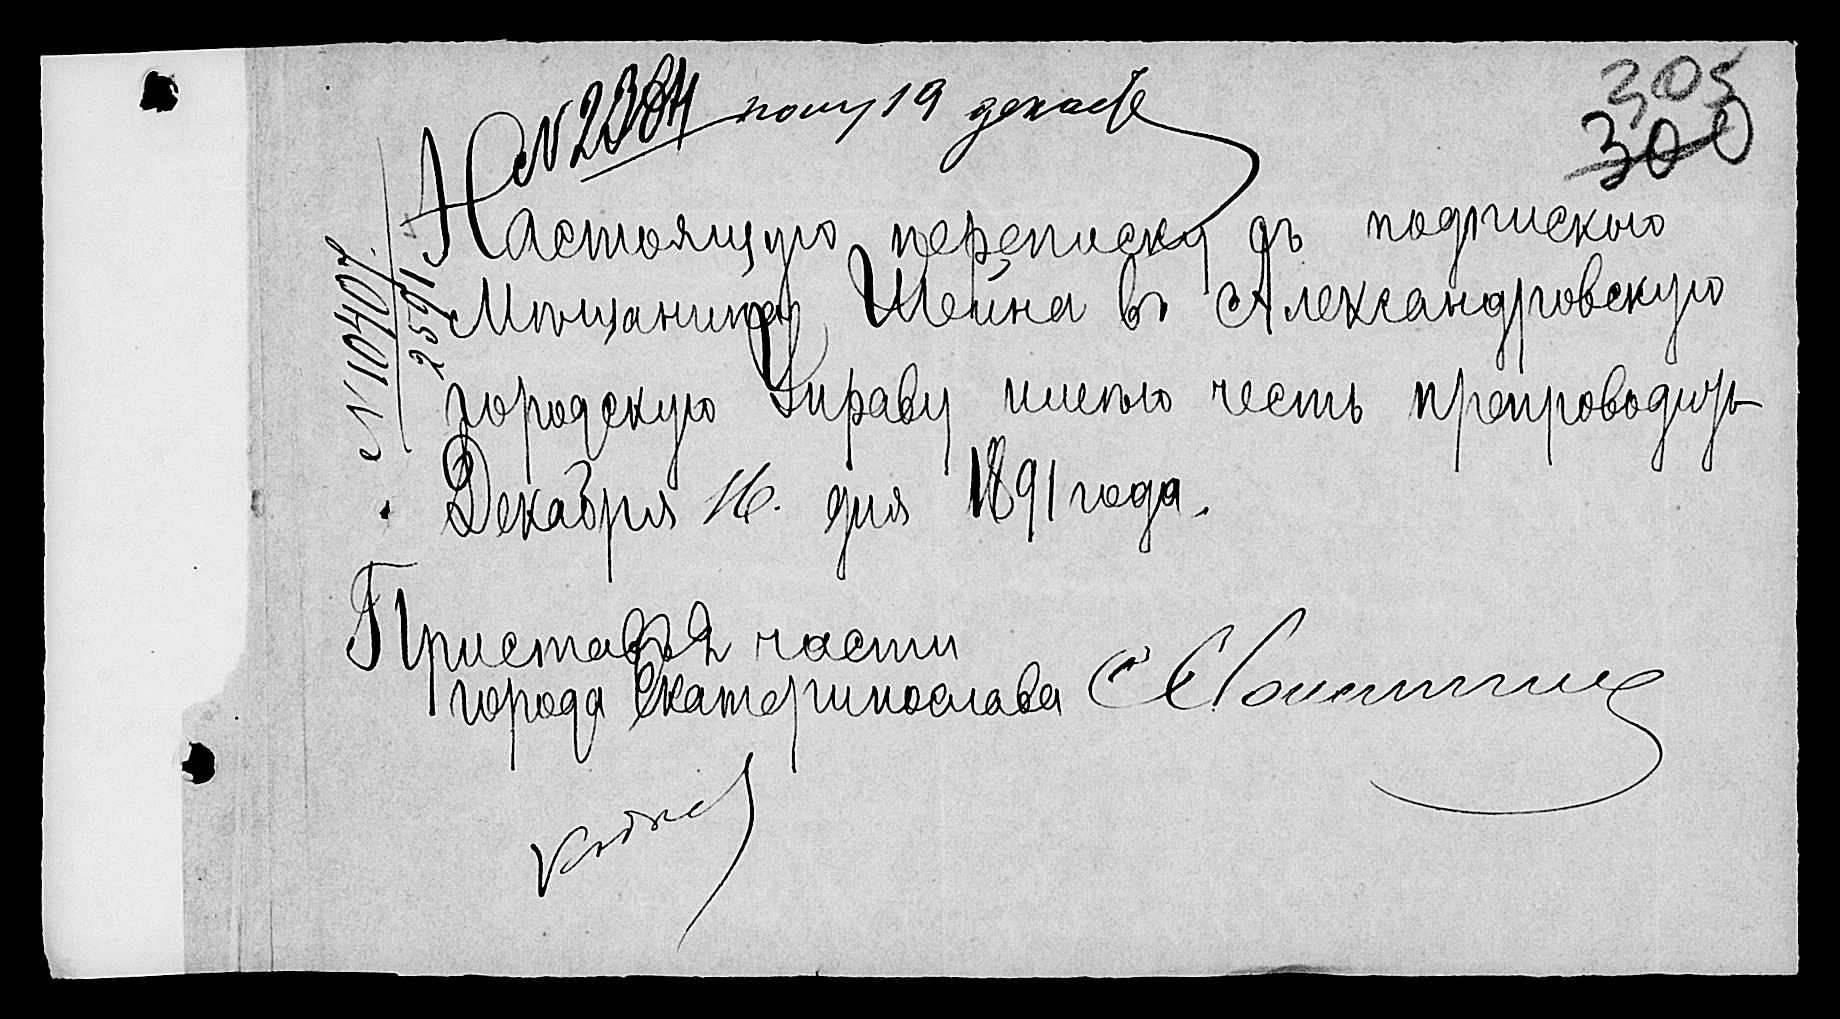 305
300
№ 2384 получ 19 декабр
№ 10407.
25591
Настоящую переписку съ подпискою
Мѣщанина Шейна въ Александровскую
городскую Управу имѣю честь препроводить
Декабря 16. дня 1891 года.
Приставъ 2 части
города Екатеринослава